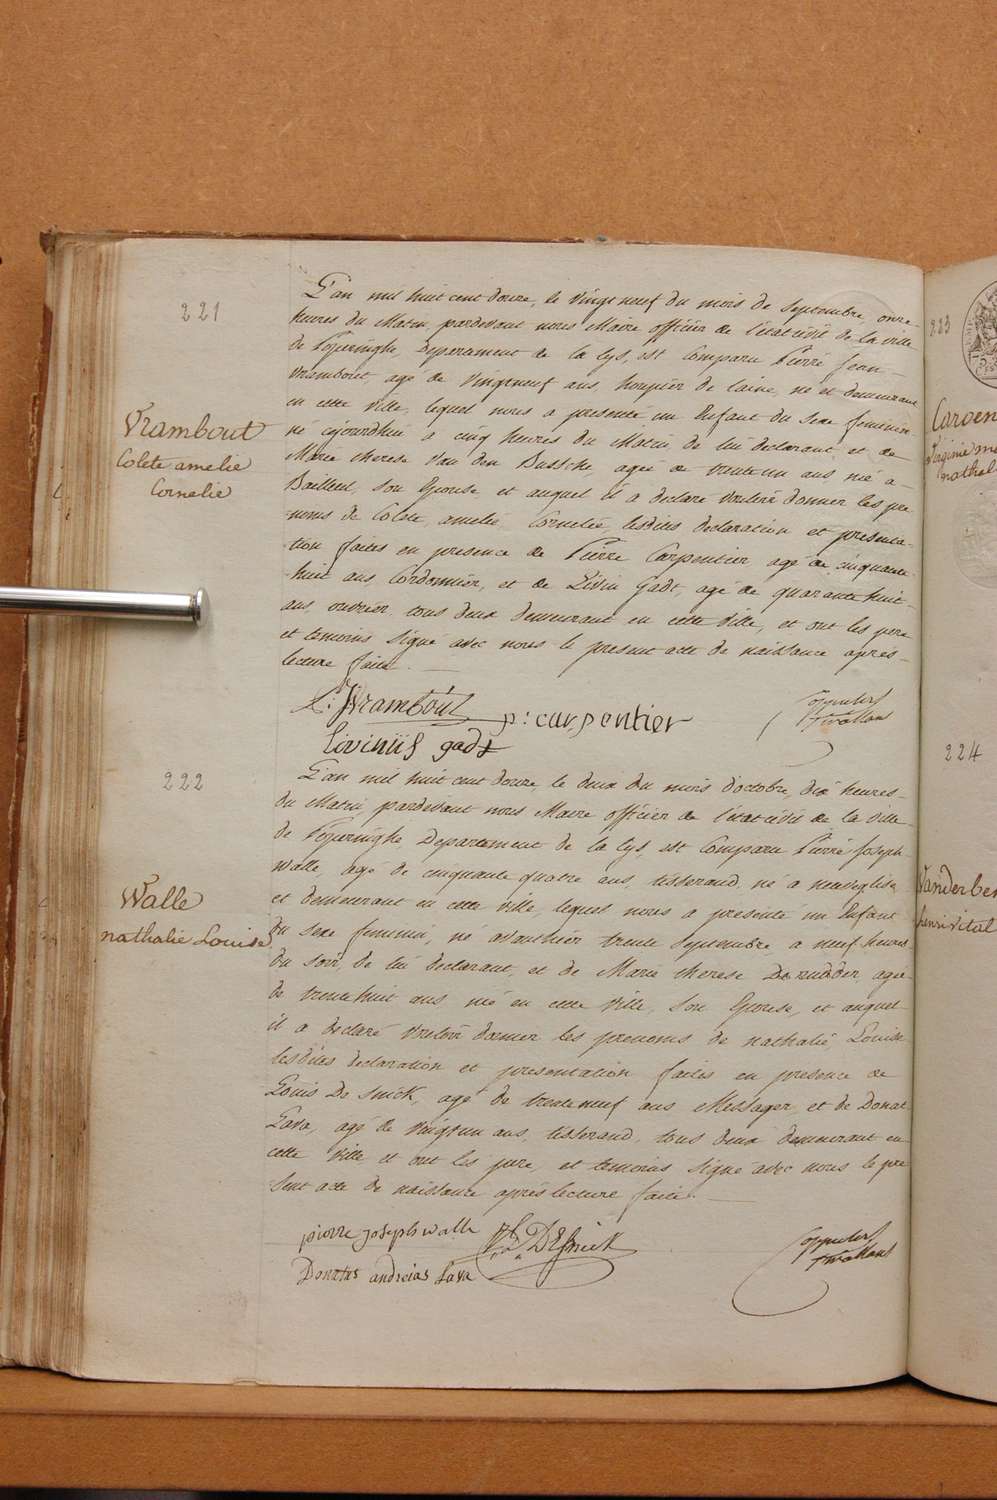 221
Vrambout
Colete amelie
Cornelie
L'an mil huit cent douze, le vingt neuf du mois de Septembre, onze
heures du Matin, pardevant nous Maire officier de l'état civil de la ville
de Poperinghe, Departement de la Lys, est Comparu Pierre Jean
Vrambout, agé de vingtneuf ans, houpier de laine, né et demeurant
en cette ville, lequel nous a presenté un Enfant du sexe feminin
né cejourdhui a cinq heures du Matin de lui declarant, et de
Marie therese Van den Bussche, agée de trente un ans née a
Bailleul, son Epouse, et auquel il a declaré vouloir donner les pre
noms de Colete, amelie Cornelie, lesdites declaration et presenta-
tion faites en presence de Pierre Carpentier agé de cinquante
huit ans Cordonnier, et de Livin Gadt, agé de quarante huit
ans, ouvrier, tous deux demeurant en cette Ville, et ont les pere
et temoins signé avec nous le present acte de naissance après
lecture faite.
P: J Vrambout p: carpentier
Livinus gadt
222
Walle
nathalie Louise
L'an mil huit cent douze, le deux du mois d'octobre, dix heures
du Matin pardevant nous Maire officier de l'état civil de la ville
de Poperinghe Departement de la Lys, est Comparu Pierre Joseph
Walle, agé de cinquante quatre ans, tisserand, né a neuveglise
et demeurant en cette ville, lequel nous a presenté un Enfant
du sexe feminin, né avanthier trente septembre, a neuf heures
du soir, de lui declarant, et de Marie therese De rudder, agée
de trentehuit ans née en cette Ville, Son Epouse, et auquel
il a declaré vouloir donner les prenoms de nathalie Louise
lesdites declaration et presentation faites en presence de
Louis De Snick, agé de trenteneuf ans Messager, et de Donat
Lava, agé de vingtun ans, tisserand, tous deux demeurant en
cette Ville et ont les pere, et temoins signé avec nous le pre
sent acte de naissance après lecture faite.
pierre joseph walle DESnick
Donatus andreias Lava
223
Virginie
nathal
224
Vanderber
henri vital